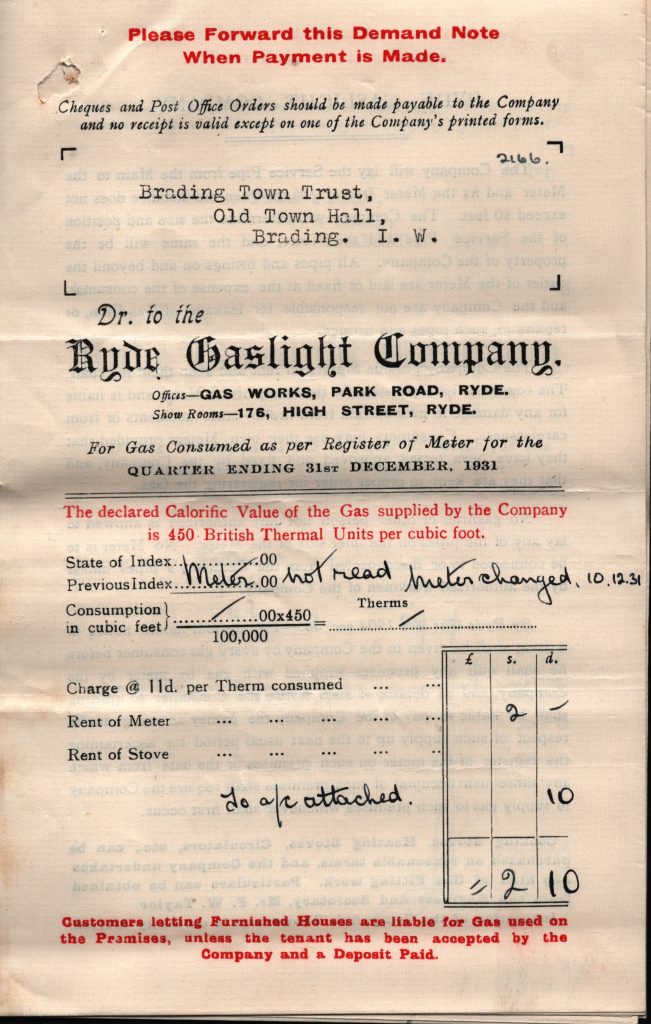 Please Forward this Demand Note
When Payment is Made.
Cheques and Post Office Orders should be made payable to the Company
and no receipt is valid except on one of the Company's printed forms.
2166.
Brading Town Trust,
Old Town Hall,
Brading. I. W.
Dr. to the
Ryde Gaslight Company.
Offices—GAS WORKS, PARK ROAD, RYDE.
Show Rooms—176, HIGH STREET, RYDE.
For Gas Consumed as per Register of Meter for the
QUARTER ENDING 31ST DECEMBER, 1931
The declared Calorific Value of the Gas supplied by the Company
is 450 British Thermal Units per cubic foot.
State of Index..................00
Previous Index..................00 Meter not read Meter changed, 10.12.31
Consumption } ..................00x450 = Therms
in cubic feet } 100,000
£ s. d.
Charge @ 11d. per Therm consumed ... ...
Rent of Meter ... ... ... ... 2 –
Rent of Stove ... ... ... ...
To a/c attached. 10
= 2 10
Customers letting Furnished Houses are liable for Gas used on
the Premises, unless the tenant has been accepted by the
Company and a Deposit Paid.